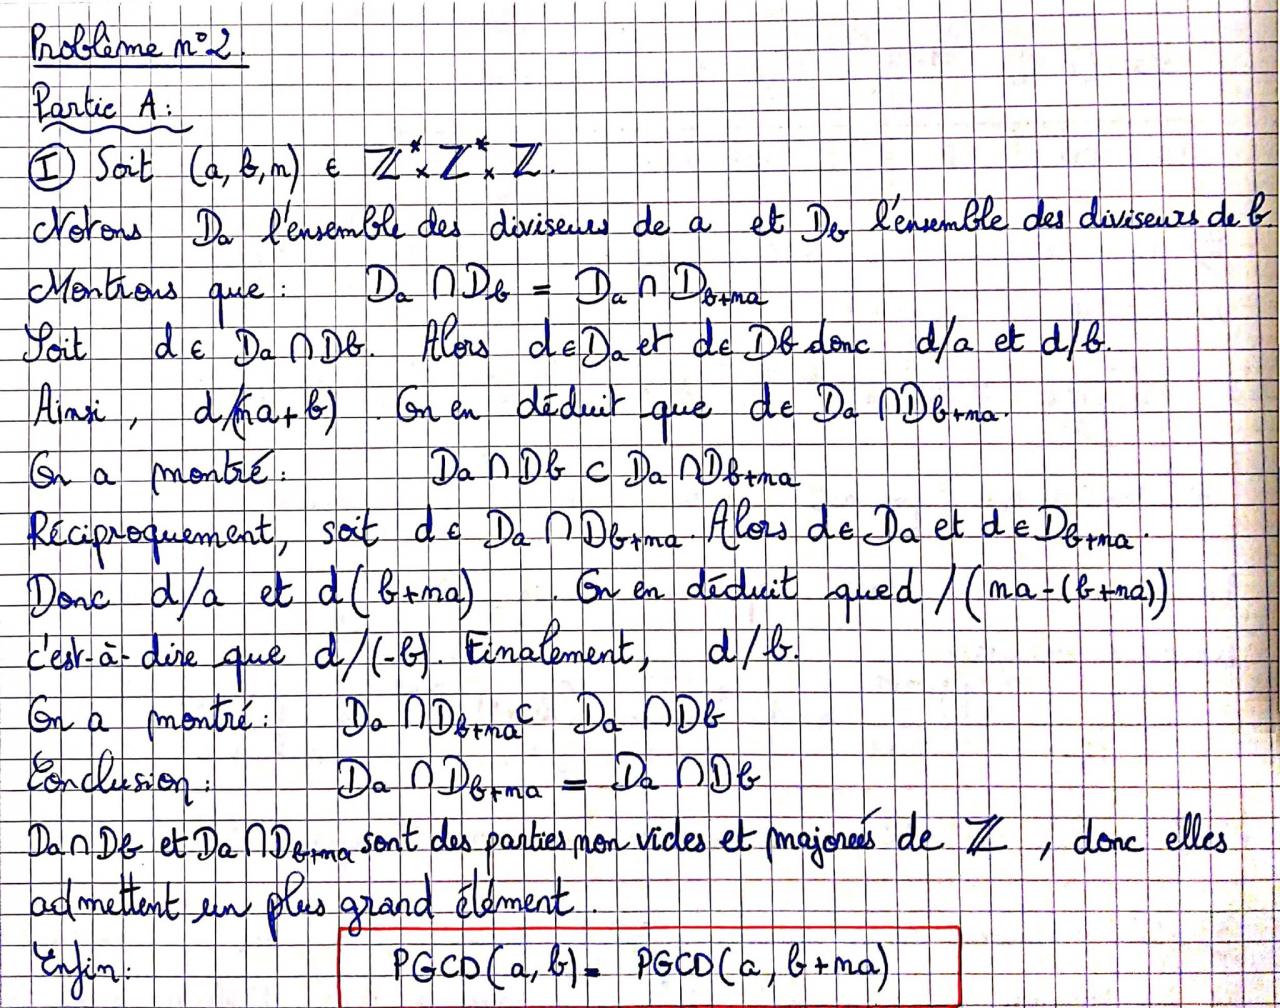 Problème n°2.
Partie A:
I Soit (a, b, n) ∈ ℤ* × ℤ* × ℤ.
Notons Da l'ensemble des diviseurs de a et Db l'ensemble des diviseurs de b.
Montrons que : Da ∩ Db = Da ∩ Db+na
Soit d ∈ Da ∩ Db. Alors d ∈ Da et d ∈ Db donc d/a et d/b.
Ainsi, d/(na+b). On en déduit que d ∈ Da ∩ Db+na.
On a montré : Da ∩ Db ⊂ Da ∩ Db+na
Réciproquement, soit d ∈ Da ∩ Db+na. Alors d ∈ Da et d ∈ Db+na.
Donc d/a et d(b+na). On en déduit que d/(na-(b+na))
c'est-à-dire que d/(-b). Finalement, d/b.
On a montré : Da ∩ Db+na ⊂ Da ∩ Db
Conclusion : Da ∩ Db+na = Da ∩ Db
Da ∩ Db et Da ∩ Db+na sont des parties non vides et majorées de ℤ, donc elles
admettent un plus grand élément.
Enfin : PGCD(a, b) = PGCD(a, b+na)